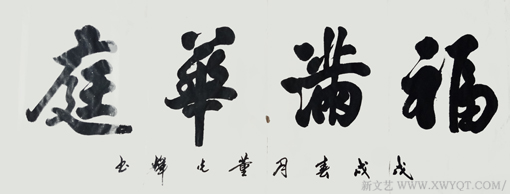 福满華庭
戊戌春月董光輝书
新文艺 WWW.XWYQT.COM